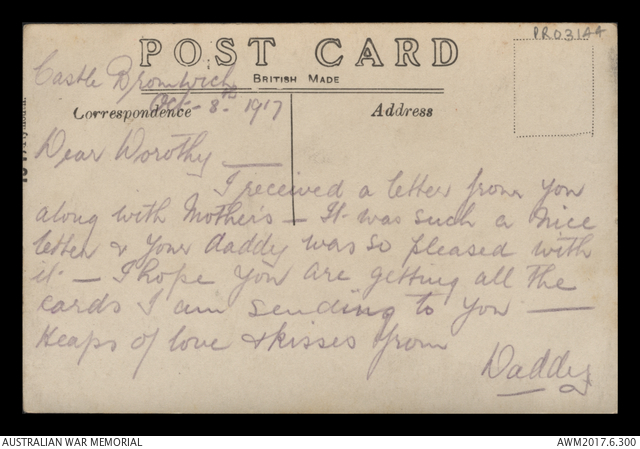 PRO3144
POST CARD
BRITISH MADE
Castle Bromwich
Oct- 8th- 1917
Correspondence
Address
Dear Dorothy —
I received a letter from you
along with Mother's — It was such a nice
letter & your daddy was so pleased with
it — I hope you are getting all the
cards I am sending to you —
Heaps of love & kisses from
Daddy
AUSTRALIAN WAR MEMORIAL
AWM2017.6.300